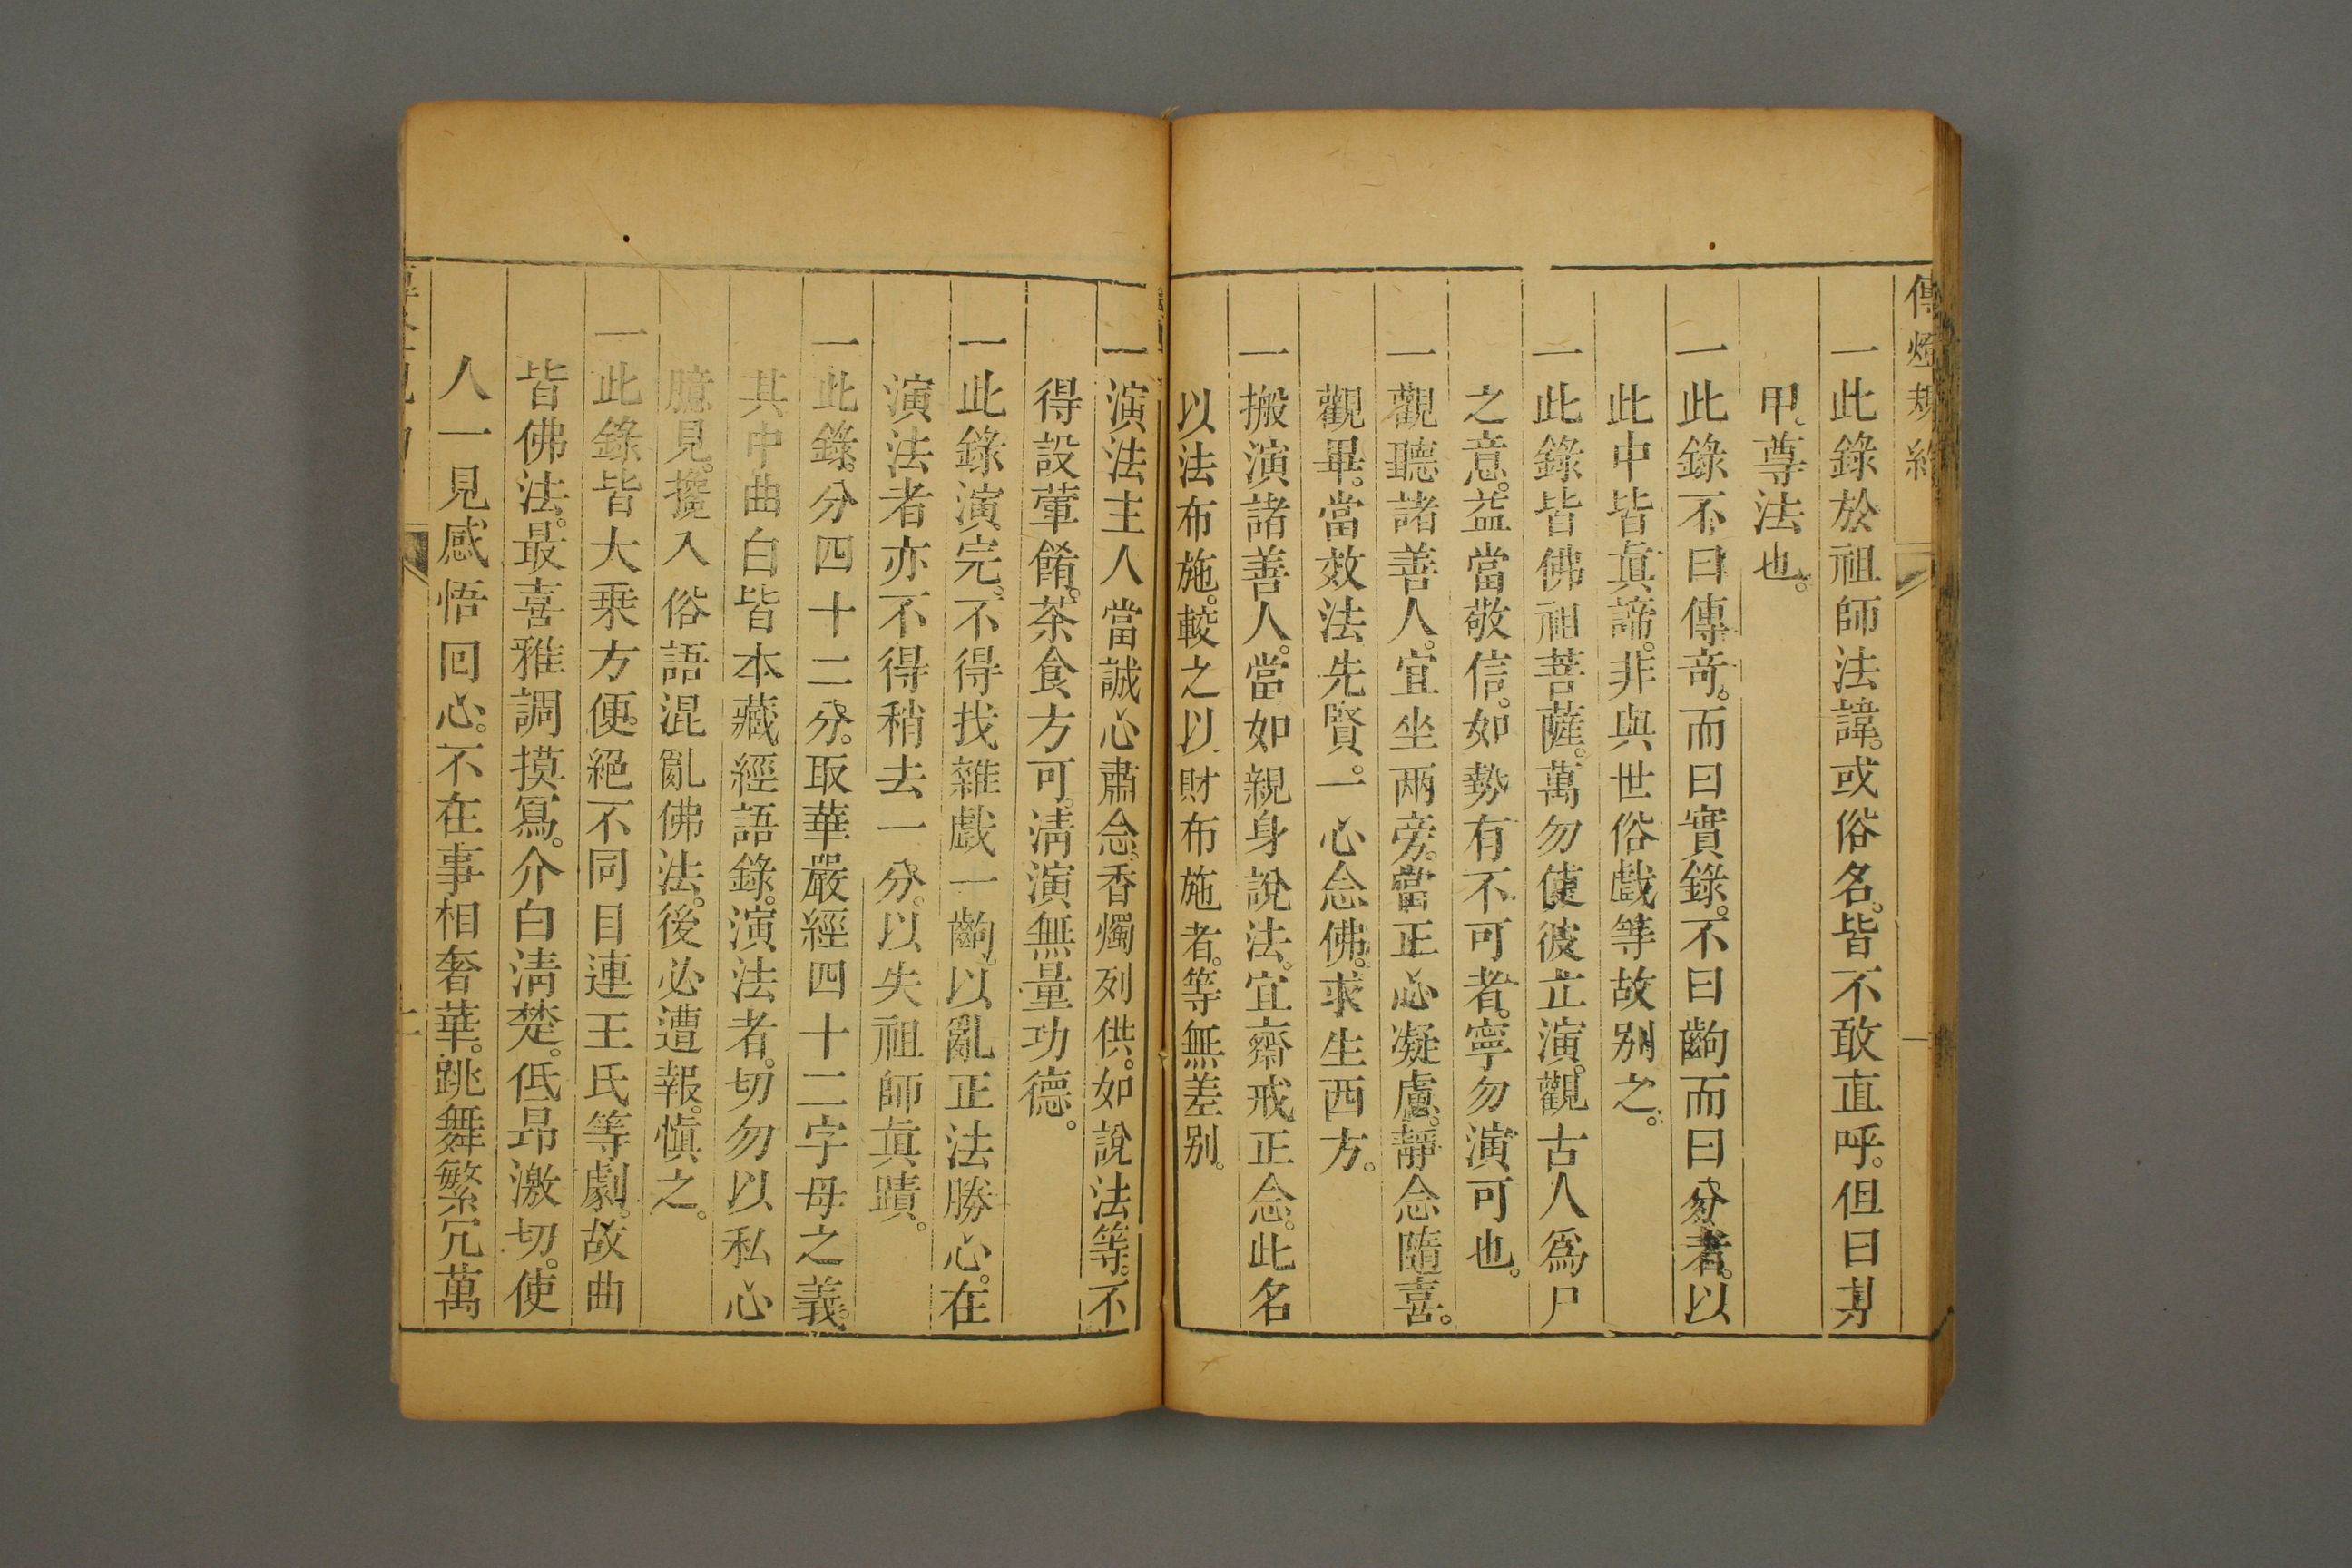 傳燈規約
一
一此錄於祖師法諱。或俗名。皆不敢直呼。但曰某
甲。尊法也。
一此錄不曰傳奇。而曰實錄。不曰齣而曰分者。以
此中皆眞諦。非與世俗戲等故别之。
一此錄皆佛祖菩薩。萬勿使彼立演。觀古人爲尸
之意。益當敬信。如勢有不可者。寧勿演可也。
一觀聽諸善人。宜坐两旁。當正心凝慮。靜念隨喜。
觀畢。當效法先賢。一心念佛。求生西方。
一搬演諸善人。當如親身說法。宜齋戒正念。此名
以法布施。較之以財布施者。等無差别。
一演法主人當誠心肅念。香燭列供。如說法等。不
得設葷餚。茶食方可。淸演無量功德。
一此錄演完。不得找雜戲一齣。以亂正法勝心。在
演法者亦不得稍去一分。以失祖師眞蹟。
一此錄。分四十二分。取華嚴經四十二字母之義。
其中曲白皆本藏經語錄。演法者。切勿以私心
臆見。攙入俗語混亂佛法。後必遭報。愼之。
一此錄皆大乗方便。絕不同目連王氏等劇。故曲
皆佛法。最喜雅調摸寫。介白淸楚。低昂激切。使
人一見感悟回心。不在事相奢華。跳舞繁冗萬